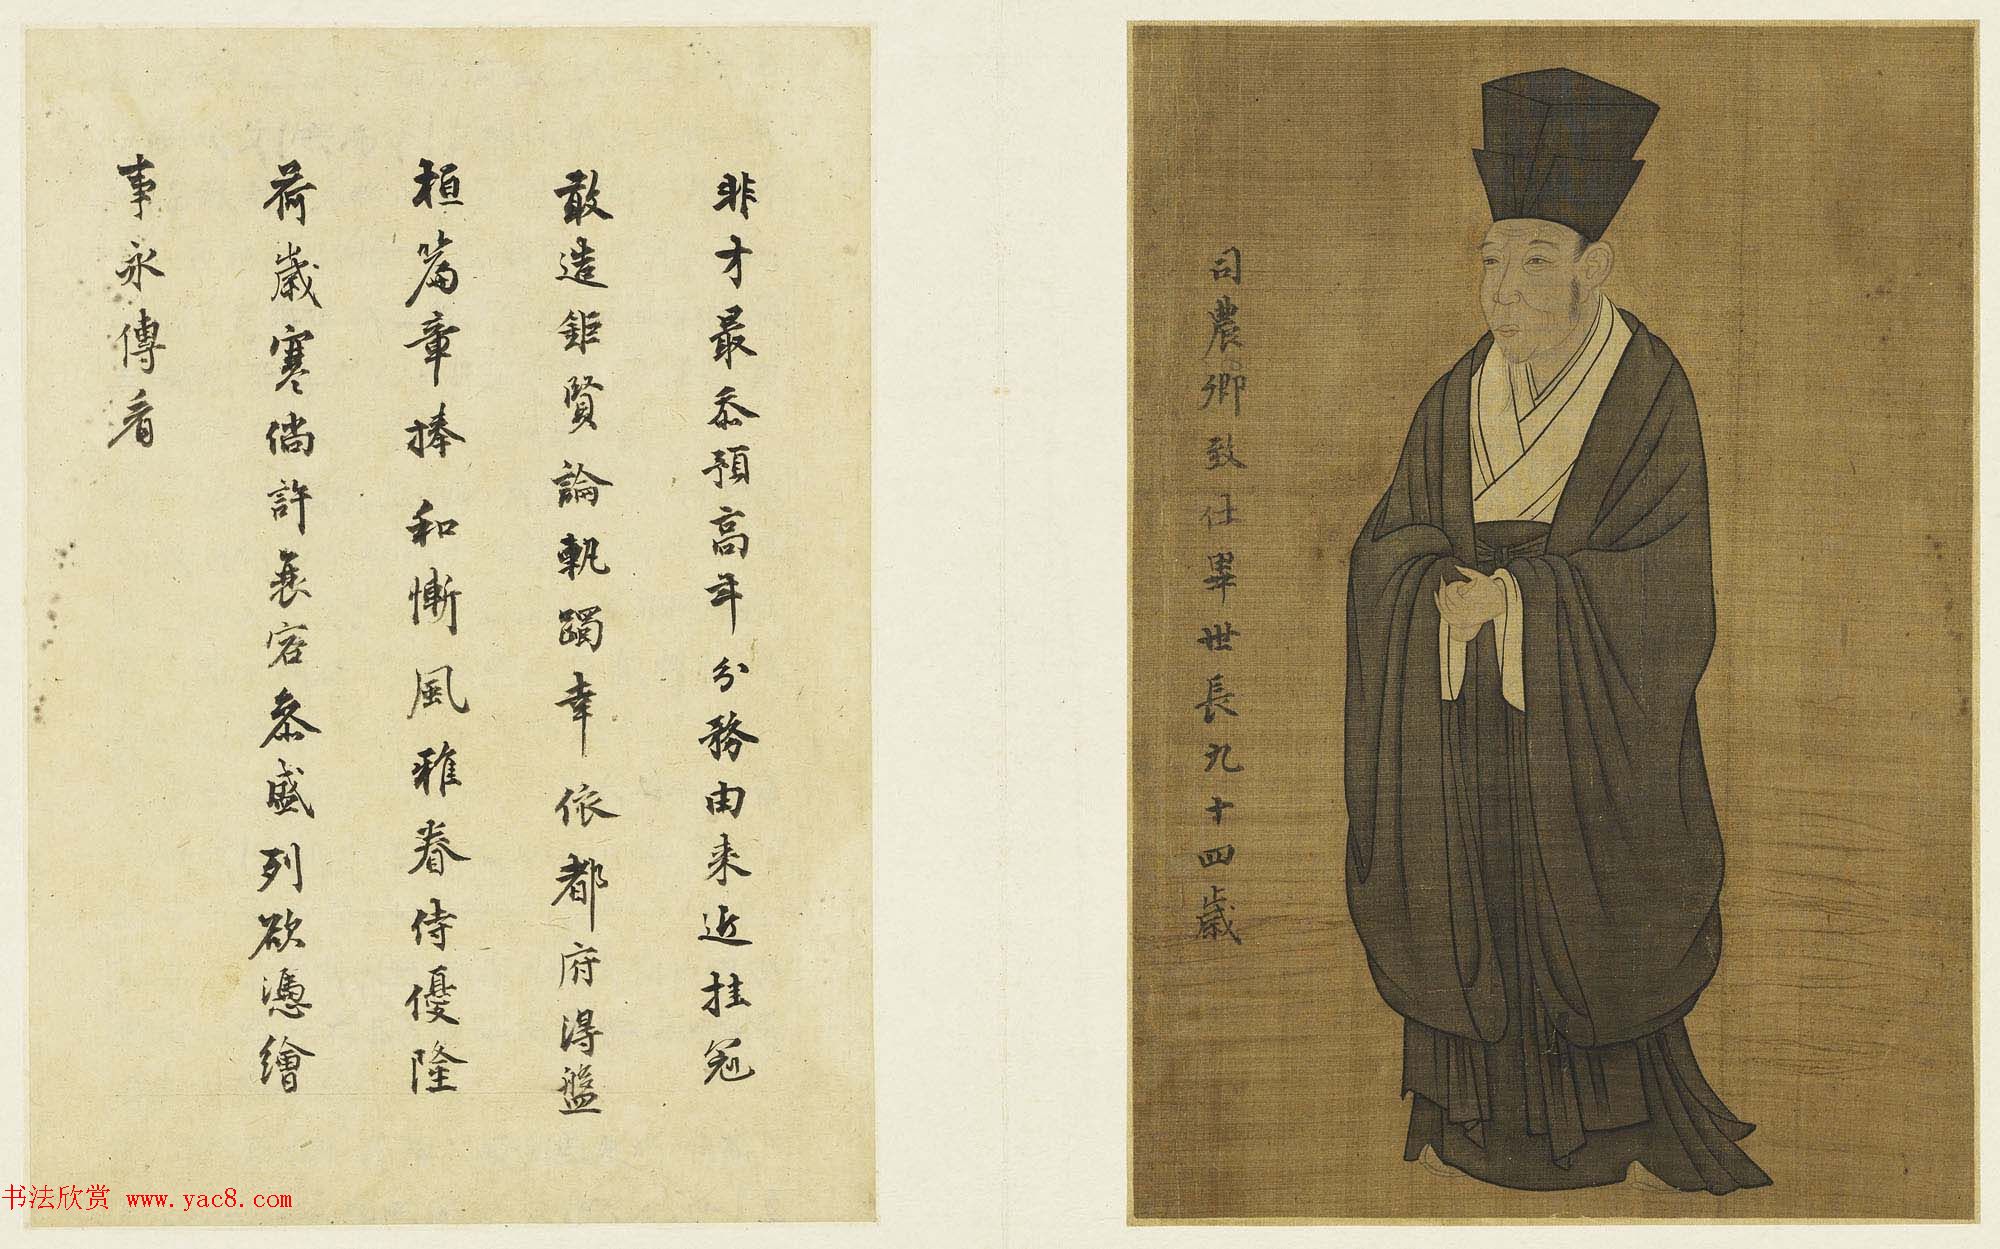 司農卿致仕畢世長九十四歲
非才最忝預高年分務由来近挂冠
敢造鉅賢論軌躅幸依都府得盤
桓篇章捧和慚風雅眷待優隆
荷歲寒倘許衰容叅盛列欲憑繪
事永傳看
书法欣赏 www.yac8.com